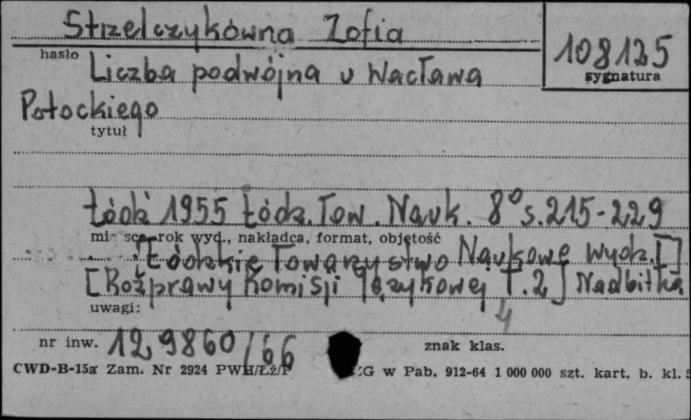 Strzelczykówna Zofia
108125
hasło
sygnatura
Liczba podwójna u Wacława
Potockiego
tytuł
Łódź 1955 Łódz. Tow. Nauk. 8° s. 215-229
rok wyd., nakładca, format, objętość
[Łódzkie Towarzystwo Naukowe Wydz. I]
[Rozprawy Komisji Językowej T. 2] Nadbitka
uwagi:
4
nr inw. 129860/66
znak klas.
CWD-B-15a Zam. Nr 2924 w Pab. 912-64 1 000 000 szt. kart. b. kl.